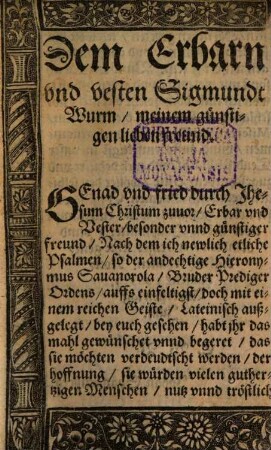 Dem Erbarn
vnd vesten Sigmundt
Wurm / meinem günsti-
gen lieben freund.
GEnad vnd fried durch Jhe-
sum Christum zuuor / Erbar vnd
Vester / besonder vnnd günstiger
freund / Nach dem ich newlich etliche
Psalmen / so der andechtige Hierony-
mus Sauanorola / Bruder Prediger
Ordens / auffs einfeltigst / doch mit ei-
nem reichen Geiste / Lateinisch auß-
gelegt / bey euch gesehen / habt jhr das
mahl gewünschet vnnd begeret / das
sie möchten verdeudscht werden / der
hoffnung / sie würden vielen guther-
tzigen Menschen / nutz vnnd tröstlich
REGIA
MONACENSIS